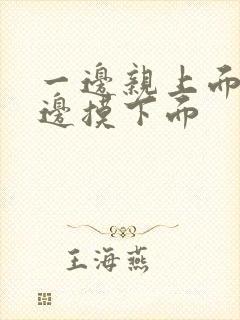 一邊親上面
邊摸下面
王海燕